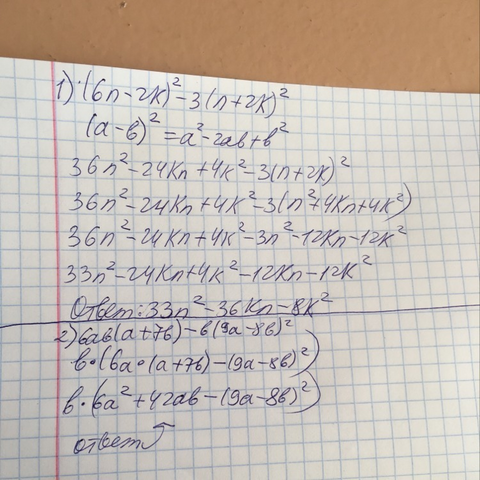 1) (6n-2k)²-3(n+2k)²
(a-b)²=a²-2ab+b²
36n²-24kn+4k²-3(n+2k)²
36n²-24kn+4k²-3(n²+4kn+4k²)
36n²-24kn+4k²-3n²-12kn-12k²
33n²-24kn+4k²-12kn-12k²
Ответ: 33n²-36kn-8k²
2) 6ab(a+7b)-b(9a-8b)²
b·(6a·(a+7b)-(9a-8b)²)
b·(6a²+42ab-(9a-8b)²)
ответ